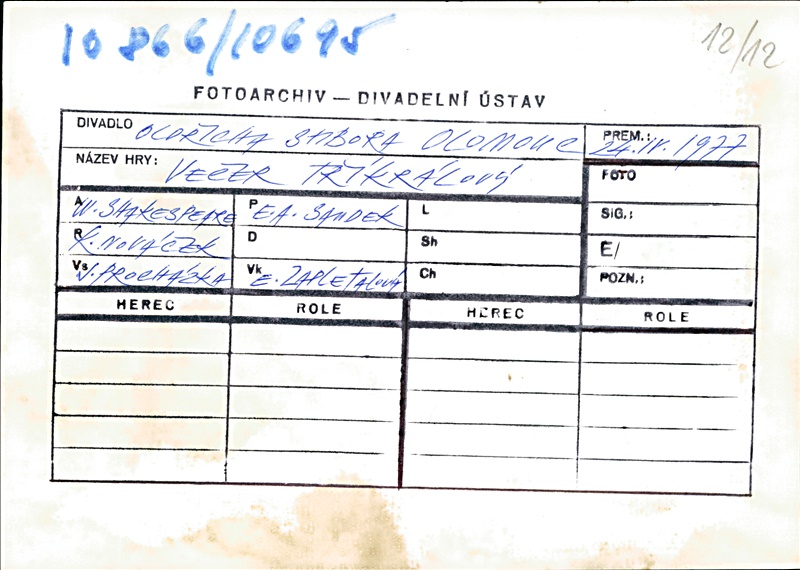 10866/10695
12/12
FOTOARCHIV — DIVADELNÍ ÚSTAV
DIVADLO OLDŘICHA STIBORA OLOMOUC
PREM.: 24.IV. 1977
NÁZEV HRY: VEČER TŘÍKRÁLOVÝ
FOTO
A W. SHAKESPEARE
P E.A. SAUDEK
L
SIG.:
R K. NOVÁČEK
D
Sh
E/
Vs V. PROCHÁZKA
Vk E. ZAPLETALOVÁ
Ch
POZN.:
HEREC ROLE HEREC ROLE